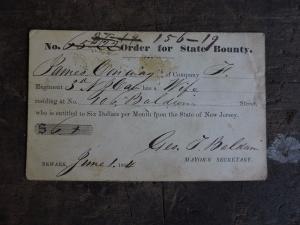 No. 156-19
Order for State Bounty.
James Conway of Company F,
Regiment 3d N J Cav has a Wife
residing at No. 406 Street,
who is entitled to Six Dollars per Month from the State of New Jersey.
$6
Geo. T. Baldwin
NEWARK, June 1. MAYOR'S SECRETARY.